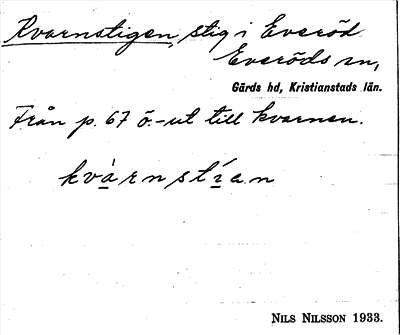 Kvarnstigen, stig i Everöd
Everöds sn,
Gärds hd, Kristianstads län.
Från p. 67 ö.-ut till kvarnen.
kvàrnstían
NILS NILSSON 1933.